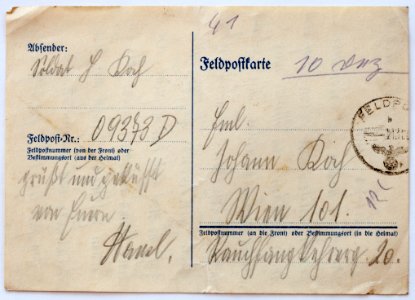 41
Absender:
Soldat H Koch
Feldpost-Nr.: 09373 D
Feldpostnummer (von der Front) oder
Bestimmungsort (aus der Heimat)
grüßt und geküßt
von Euren
Hansl.
Feldpostkarte
10
FELDPO
Johann Koch
Wien 101.
Feldpostnummer (an die Front) oder Bestimmungsort (in die Heimat)
Rauchfangkehrerg. 20.